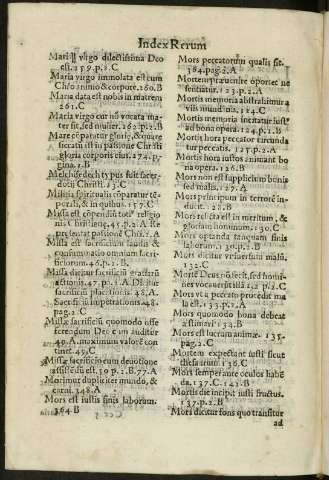 Index Rerum
Maria virgo dilectissima Deo
est. 259. p. 2. C
Maria virgo immolata est cum
Chro animo & corpore. 260. B
Maria data est nobis in matrem
261. C
Maria virgo cur nō vocata ma-
ter sit, sed mulier. 262. p. 2. B
Mare cōparatur
sacratū est in passione Christi
gloria corporis eius. 274. p-
gina. 1. B
Melchisedech typus fuit sacer-
dotij Christi. 15. C
Militia spiritualis cōparatur tē-
porali, & in quibus. 157. C
Missa est cōpendiū totiꝰ religio
nis Christianę. 45. p. 2. A
presentat passionē Christi. 2. A
Missa est sacrificium laudis &
consummatio omnium sacri-
ficiorum. 46. p. 2. B
Missa dicitur sacrificiū gratiarū
actionis. 47. p. 2. A. Dicitur
sacrificiū placationis. 48. A
Sacrificiū impetrationis. 48.
pag. 2. C
Missæ sacrificiū quomodo offe
ferendum Deo cum auditer
49. A. maximum valorē con
tinet. 49. C
Missæ sacrificio cum deuotione
assistēdū est. 50. p. 2. B. 77. A
Morimur dupliciter mundo, &
carni. 348. A
Mors est iustis finis laborum.
364. B
Mors peccatorum qualis sit.
384. pag. 2. A
Mortem præuenire oportet ne
sentiatur. 123. p. 2. A
Mortis memoria abstrahit nos à
vijs mundanis. 124. C
Mortis memoria incitatur iustꝰ
ad bona opera. 124. p. 2. B
Mortis hora peccator circunda
tur peccatis. 125. p. 2. A
Mortis hora iustos animant bo
na opera. 126. B
Mors non est supplicium bonis
sed malis. 127. A
Mors principum in terrorē in-
ducit. 128. A
Mors relicta est in meritum, &
gloriam hominum. 130. C
Mors optanda tanquam finis
laborum. 130. p. 2. B
Mors dicitur vniuersum malū.
132. C
Mortē Deus nō fecit, sed homi-
nes vocauerūt illā. 132. C
Mors vt à peccato procedit ma
la est. 133. p. 2. A
Mors quomodo bona debeat
æstimari. 134. B
Mors est lucrum animæ. 135.
pag. 2. C
Mortem expectant iusti sicut
thesaurum. 136. C
Mors semper ante oculos habē
da. 137. C. 143. B
Mortis die incipit iusti fructus.
137. p. 2. B
Mors dicitur fons quo transitor
ad